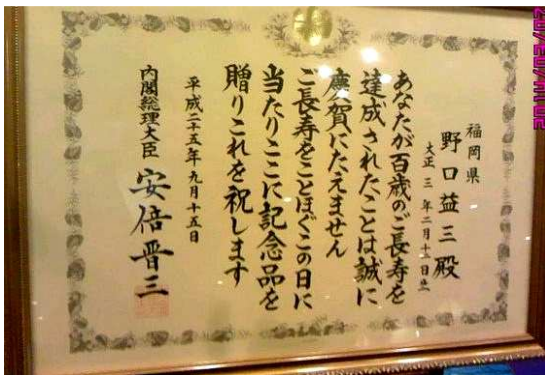 福岡県
野口益三殿
大正三年二月十二日生
あなたが百歳のご長寿を
達成されたことは誠に
慶賀にたえません
ご長寿をことほぐこの日に
当たりここに記念品を
贈りこれを祝します
平成二十五年九月十五日
内閣総理大臣 安倍晋三